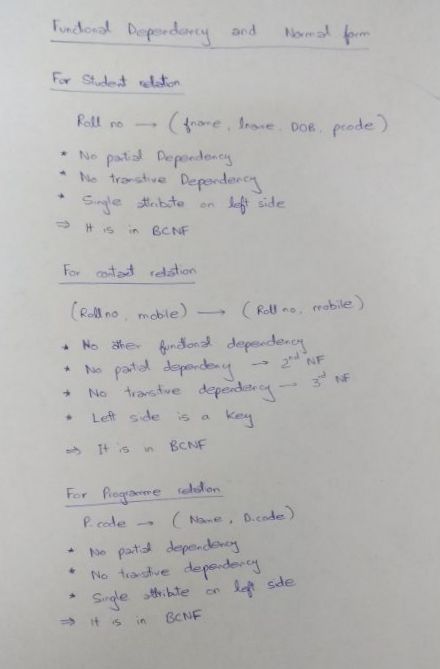 Functional Dependency and Normal form
For Student relation
Roll no → (fname, lname, DOB, pcode)
* No partial Dependency
* No transtive Dependency
* Single attribute on left side
⇒ It is in BCNF
For contact relation
(Roll no, mobile) → (Roll no, mobile)
* No other functional dependency
* No partial dependency → 2nd NF
* No transtive dependency → 3rd NF
* Left side is a key
⇒ It is in BCNF
For Programme relation
P.code → (Name, D.code)
* No partial dependency
* No transtive dependency
* Single attribute on left side
⇒ It is in BCNF